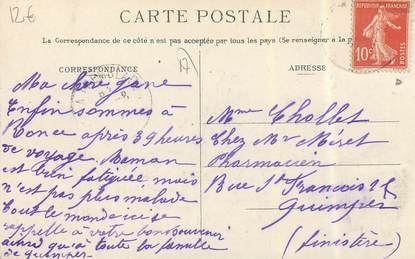 12€
CARTE POSTALE
La Correspondance de ce côté n'est pas acceptée par tous les pays (Se renseigner à la
CORRESPONDANCE
ADRESSE
17
REPUBLIQUE FRANÇAISE
10c
Ma chère Jane
Enfin sommes à
Vence après 39 heures
de voyage. Maman
est bien fatiguée mais
n'est pas plus malade
tout le monde ici se
rappelle à votre bon souvenir
ainsi qu'à toute la famille
de Quimper
Mme Chollet
Chez Mr Méret
Pharmacien
Rue St Francois
Quimper
(Finistère)